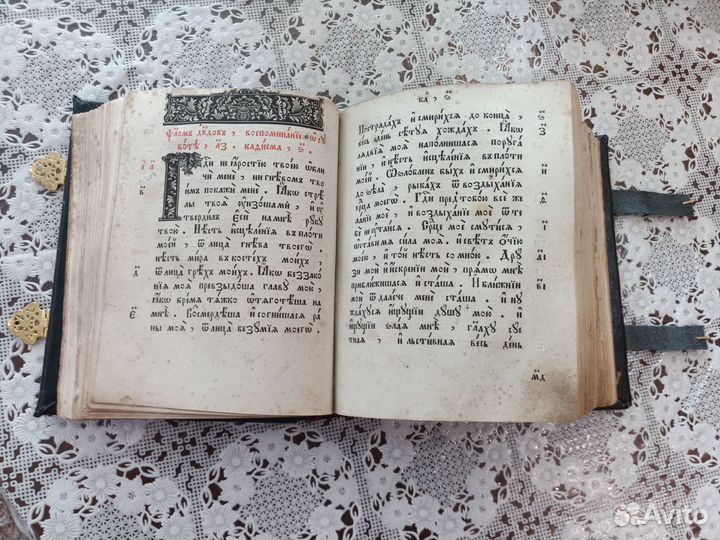 Ѱ҃ломъ дв҃довъ , воспоминанїе ѿ сꙋ
бо́тѣ , л҃з . кафи́сма , ѕ҃ .
Гд҃и не ꙗ҆́ростїю твое́ю ѡ҆бли
чи́ менѐ , ни гнѣ́вомъ тво
и́мъ пока́жи менѐ . Ꙗ҆́кѡ стрѣ
лы̀ твоѧ̀ оу҆нзо́ша мѝ , и҆ оу҆
тверди́лъ є҆сѝ на мнѣ̀ рꙋ́кꙋ
твою̀ . Нѣ́сть и҆сцѣле́нїѧ в пло́ти
мое́й , ѿ лица̀ гнѣ́ва твоегѡ̀ .
нѣ́сть ми́ра в косте́хъ мои́хъ ,
ѿ лица̀ грѣ́хъ мои́хъ . Ꙗ҆́кѡ беззако́
нїѧ моѧ̀ превзыдо́ша главꙋ̀ мою̀ ,
ꙗ҆́кѡ бре́мѧ тѧ́жко ѡ҆тѧготѣ́ша на
мнѣ̀ . Возмердѣ́ша и҆ согни́шасѧ ра́
ны моѧ̀ , ѿ лица̀ безꙋ́мїѧ моегѡ̀ .
в҃
д҃
є҃
к҃а , ѕ҃
Пострада́хъ и҆ смири́хсѧ до конца̀ ,
ве́сь де́нь сѣ́тꙋѧ хожда́хъ . Ꙗ҆́кѡ
лѧ́двїѧ моѧ̀ напо́лнишасѧ порꙋга́
нїи , и҆ нѣ́сть и҆сцѣле́нїѧ в пло́ти
мое́й . Ѡ҆ѕло́бленъ бы́хъ и҆ смири́хсѧ
до ѕѣла̀ , рыка́хъ ѿ воздыха́нїѧ
се́рдца моегѡ̀ . Гд҃и пред̾ тобо́ю всѐ же
ла́нїе моѐ , и҆ воздыха́нїе моѐ ѿ те
бѐ не оу҆таи́сѧ . Се́рдце моѐ смꙋти́сѧ ,
ѡ҆ста́ви мѧ̀ си́ла моѧ̀ . и҆ свѣ́тъ ѻ҆́чїю
мое́ю , и҆ то́й нѣ́сть со мно́ю . Дрꙋ́
зи моѝ и҆ и҆́скреннїи моѝ , прѧ́мѡ мнѣ̀
прибли́жишасѧ и҆ ста́ша . И҆ бли́жнїи
моѝ ѿдале́че менѐ ста́ша . и҆ нꙋ
жда́хꙋсѧ и҆́щꙋщїи дꙋ́шꙋ мою̀ . и҆
и҆́щꙋщїи ѕла́ѧ мнѣ̀ , глаго́лахꙋ сꙋ́е
тнаѧ , и҆ льсти́внаѧ ве́сь де́нь
з҃
и҃
ѳ҃
і҃
а҃і
в҃і
м҃д
Avito